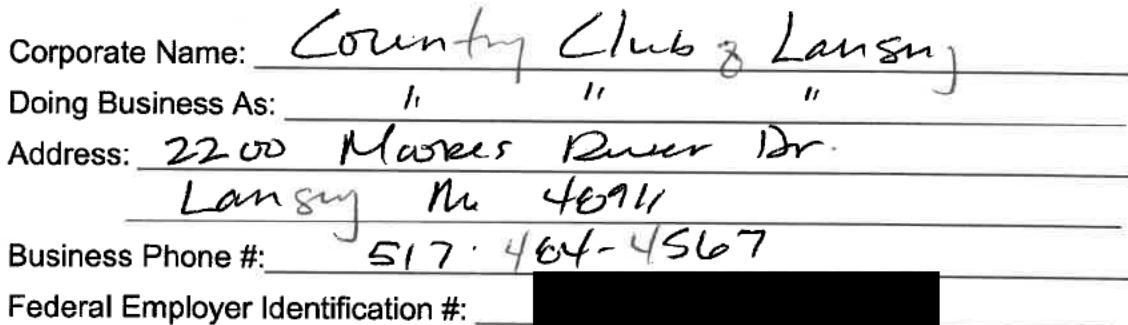 Corporate Name: Country Club of Lansing
Doing Business As: " " "
Address: 2200 Moores River Dr.
Lansing Mi 48911
Business Phone #: 517-484-4567
Federal Employer Identification #: